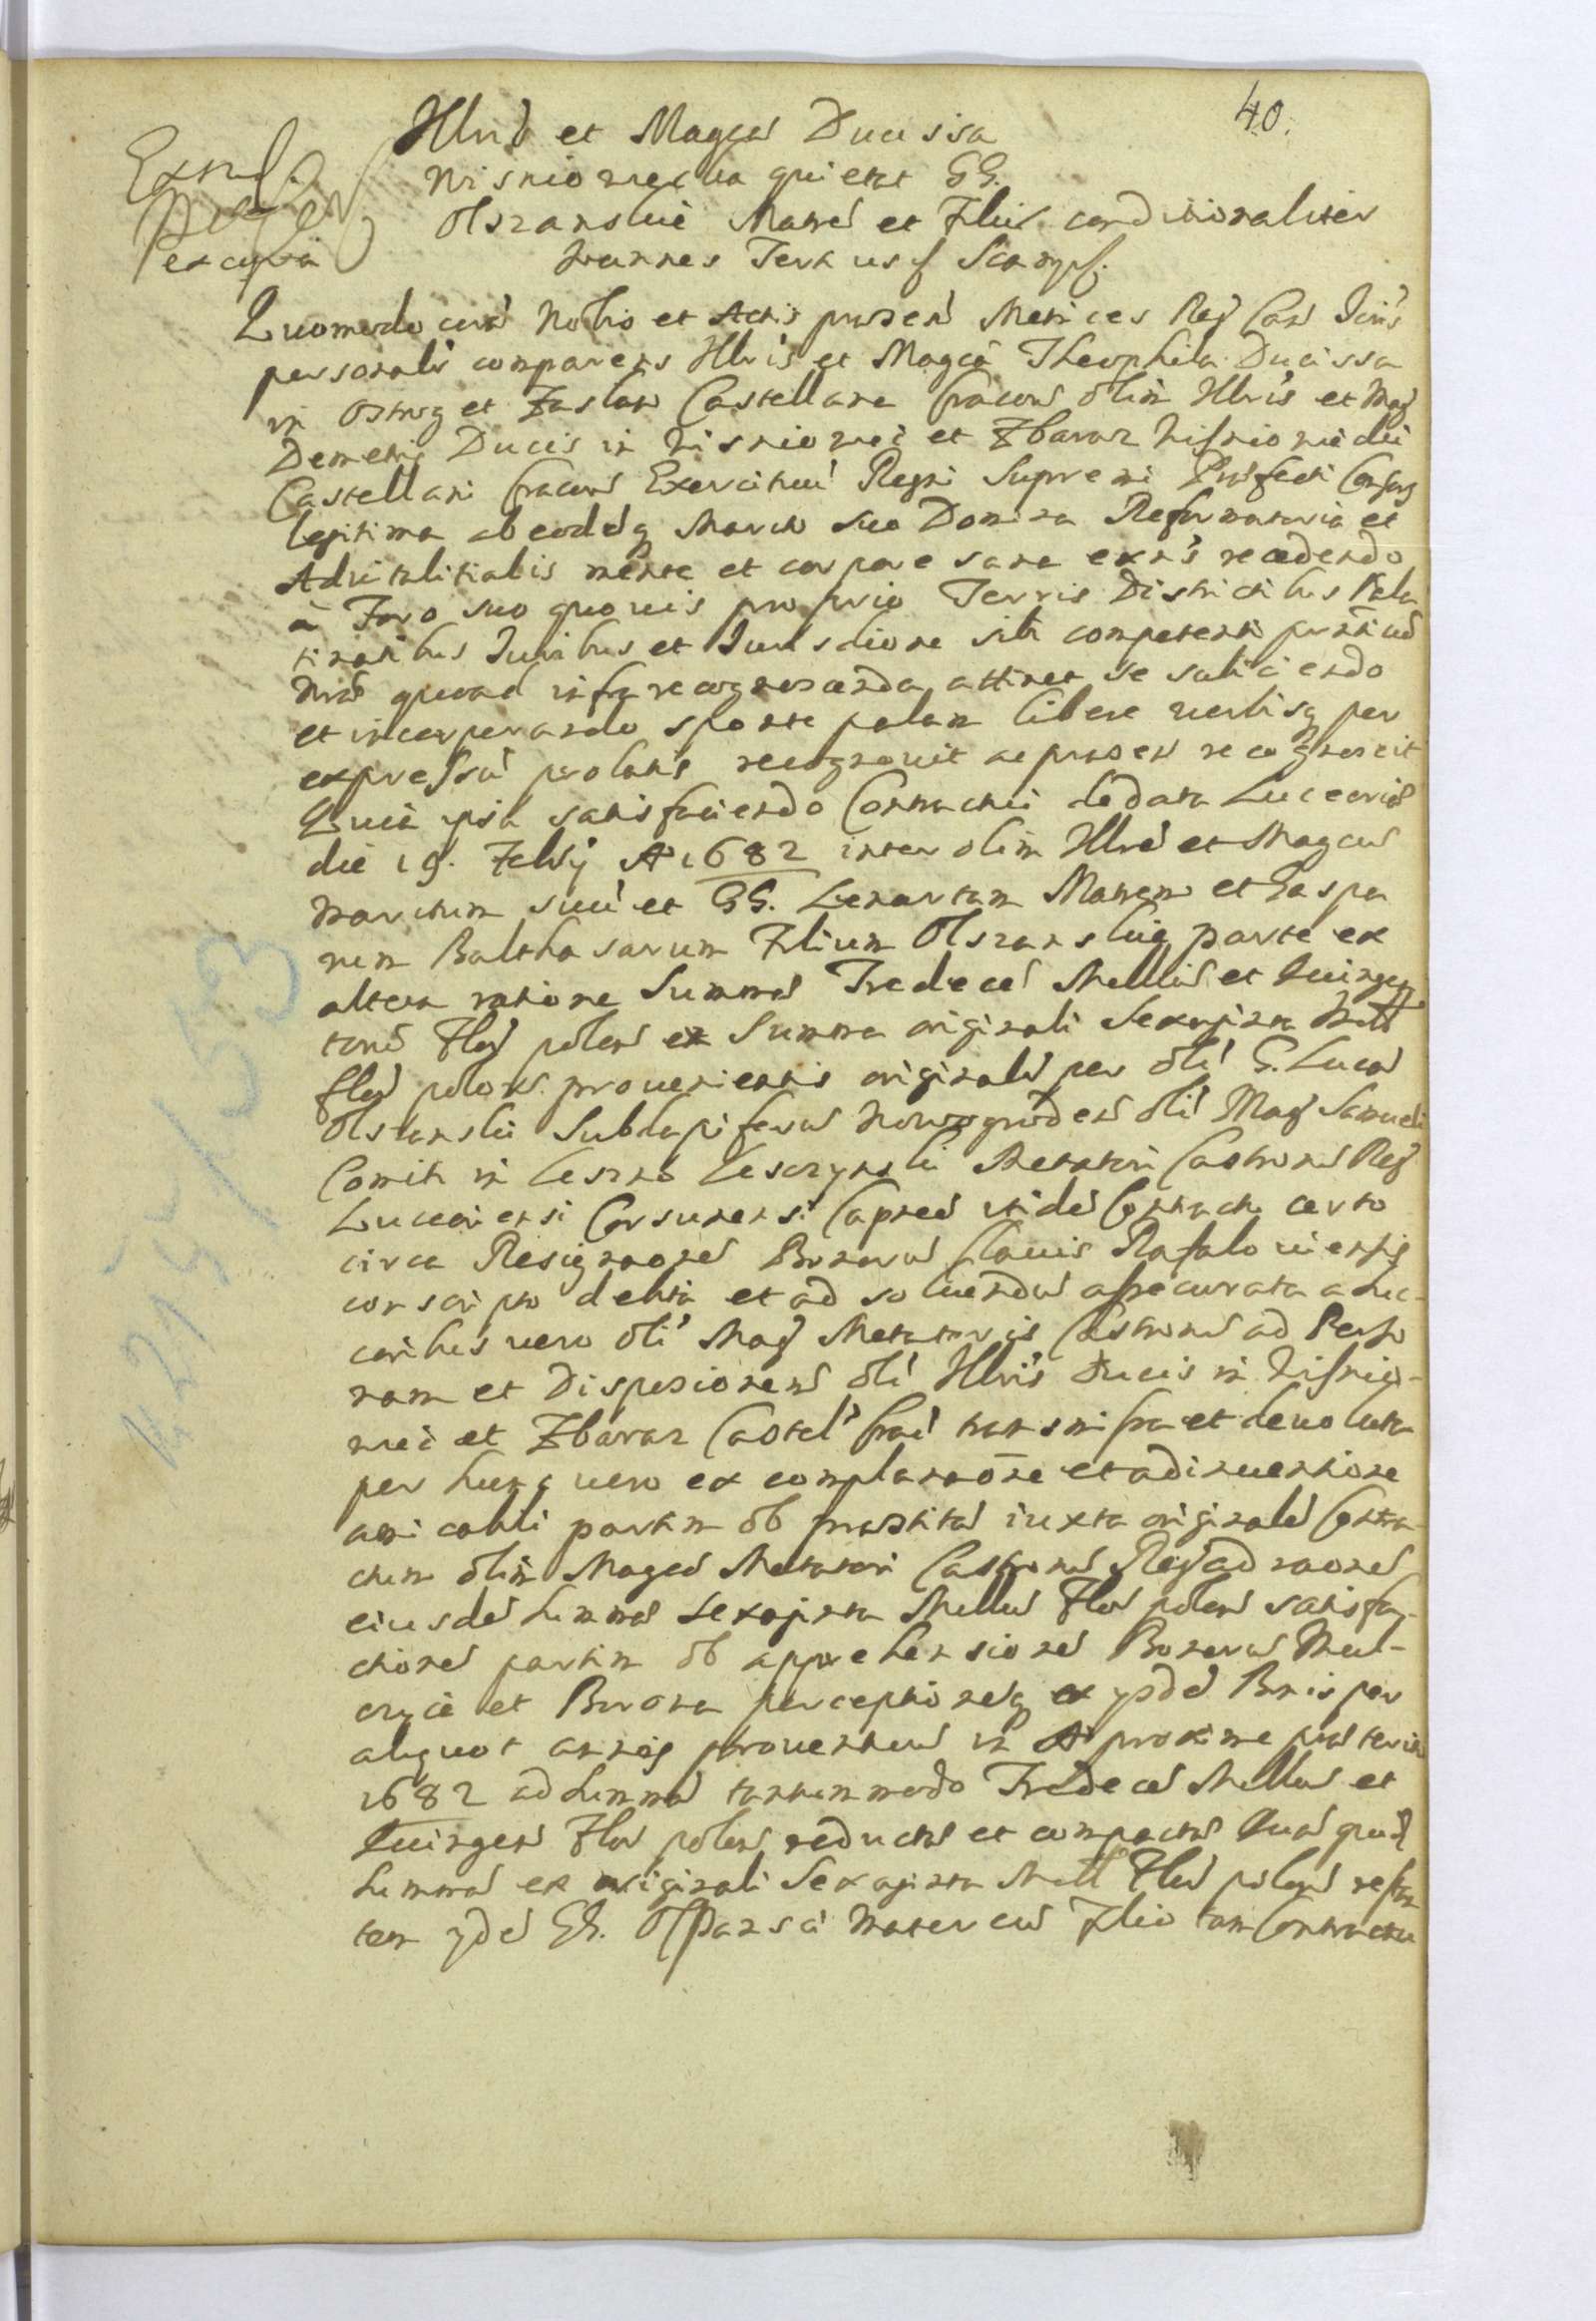 40.
Illris et Magca Ducissa
Wisniowiecka quietat GG.
Olszanskie Matre et Filiu conditionaliter
Ioannes Terkus
ex cuya
Quomodo coram Nobis et Actis praesen Metrices Reg Can
personalr comparens Illris et Magca Theophila Ducissa
in Ostrog et Zaslaw Castellana Cracow olim Illris et Mag
Demetrij Ducis in Wisniowiec et Zbaraz Wisniowiecki
Castellani Cracow Exercituu Regni Supremi Praefecti
legitima ab eodeq Marito suo Domina Reformatoria et
Aduitalitialis mente et corpore sana exns recedendo
à Foro suo quouis proprio Terris Districtibus Pala
tinatibus Iuribus et Iurisdictione sibi competenti
quoad infra recognoscenda attinet se subiiciendo
et incorporando sponte palam libere uerbisq per
expressu prolatis recognouit ac praesen recognoscit
Quia ipsa satisfaciendo Contractui de data Luceoriae
die 19. Febrij Ao 1682 inter olim Illre et Magcu
maritum suu et GG. Lenartam Matrem et Gaspa
rem Balthasarum Filium Olszanskie parte ex
altera ratione Summae Tredece Milliu et Quingen
toru Flor polon ex Summa originali Sexaginta Mill
flor polon. prouenientis originalr per oli G. Luca
Olszanski Subdapiferu Nowogroden oli Mag Samueli
Comiti in Leszno Leszczynski Metatori Castroru Reg
Luceoriensi Corsunensi Capneo uide Contractu certo
circa Resignaone Bonoru Clauis Rafalouiensis
conscripto debita et ad soluendu assecurata a Suc-
coribus uero oli Mag Metatoris Castroru ad Perso
nam et Disposionem oli Illris Ducis in Wisnio-
wiec et Zbaraz Castel Crac transmissa et deuoluta
per hunq uero ex complanaone et adinuentione
amicabili partim ob praestita iuxta originale Contra-
ctum olim Magco Metatori Castroru Reg ad raone
eiusde Summae Sexaginta Milliu Flor polon satisfa-
ctione partim ob apprehensione Bonoru Mul-
czyce et Borona perceptioneq ex ysde Bonis per
aliquot annos prouentuu in Ao proxime praeterito
1682 ad Summa tantummodo Tredece Milliu et
Quingen Flor polon reducta et compacta Qua quid
Summa ex originali Sexaginta Mill Flor polon restan
tem yde GG. Olszansci Mater cu Filio tam Contractu